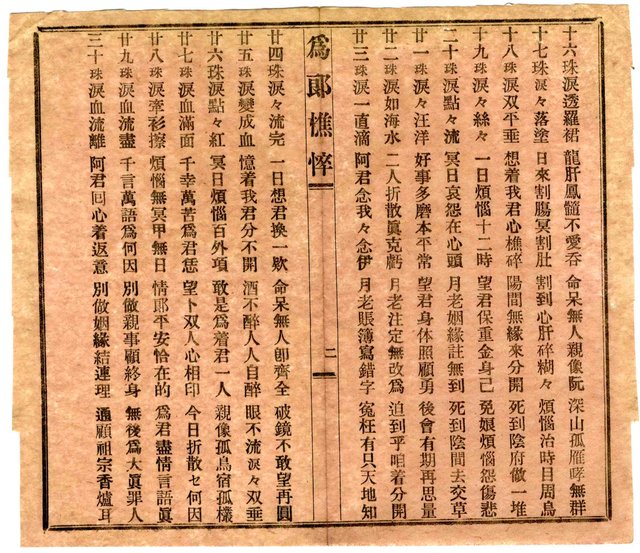 十六珠淚透羅裙 龍肝鳳髓不愛吞 命呆無人親像阮 深山孤雁哮無群
十七珠淚々落塗 日來割膓冥割肚 割到心肝碎糊々 煩惱治時目周烏
十八珠淚双平垂 想着我君心樵碎 陽間無緣來分開 死到陰府做一堆
十九珠淚々絲々 一日煩惱十二時 望君保重金身己 免娘煩惱怨傷悲
二十珠淚點々流 冥日哀怨在心頭 月老姻緣註無到 死到陰間去交草
廿一珠淚々汪洋 好事多磨本平常 望君身体照顧勇 後會有期再思量
廿二珠淚如海水 二人折散眞克虧 月老注定無改為 迫到乎咱着分開
廿三珠淚一直滴 阿君念我々念伊 月老賬簿寫錯字 冤枉有只天地知
為郎樵悴 二
廿四珠淚々流完 一日想君換一欵 命呆無人卽齊全 破鏡不敢望再圓
廿五珠淚變成血 憶着我君分不開 酒不醉人人自醉 眼不流淚々双垂
廿六珠淚點々紅 冥日煩惱百外項 敢是為着君一人 親像孤鳥宿孤欉
廿七珠淚血滿面 千幸萬苦為君恁 望卜双人心相印 今日折散セ何因
廿八珠淚牽衫擦 煩惱無冥甲無日 情郎平安恰在的 為君盡情言語眞
廿九珠淚血流盡 千言萬語為何因 別做親事顧終身 無後為大眞罪人
三十珠淚血流離 阿君囘心着返意 別做姻緣結連理 通顧祖宗香爐耳